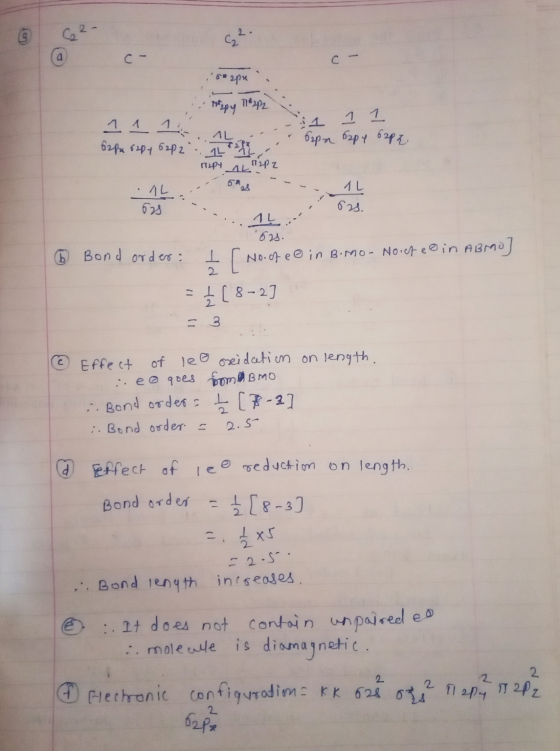 ⑨ C₂²⁻
ⓐ C⁻ C₂²⁻ C⁻
σ*2px
π*2py π*2pz
1 1 1 1 1 1
σ2px σ2py σ2pz σ2px σ2py σ2pz
1L
σ2px
1L 1L
π2py π2pz
1L
σ*2s
1L 1L
σ2s σ2s.
1L
σ2s.
ⓑ Bond order: 1/2 [No. of e⊖ in B.MO - No. of e⊖ in ABMO]
= 1/2 [8-2]
= 3
ⓒ Effect of 1e⊖ oxidation on length.
∴ e⊖ goes from BMO
∴ Bond order = 1/2 [7-2]
∴ Bond order = 2.5
ⓓ Effect of 1e⊖ reduction on length.
Bond order = 1/2 [8-3]
= 1/2 x5
= 2.5
∴ Bond length increases.
ⓔ ∴ It does not contain unpaired e⊖
∴ molecule is diamagnetic.
ⓕ Electronic configuration = KK σ2s² σ*2s² π2py² π2pz²
σ2px²